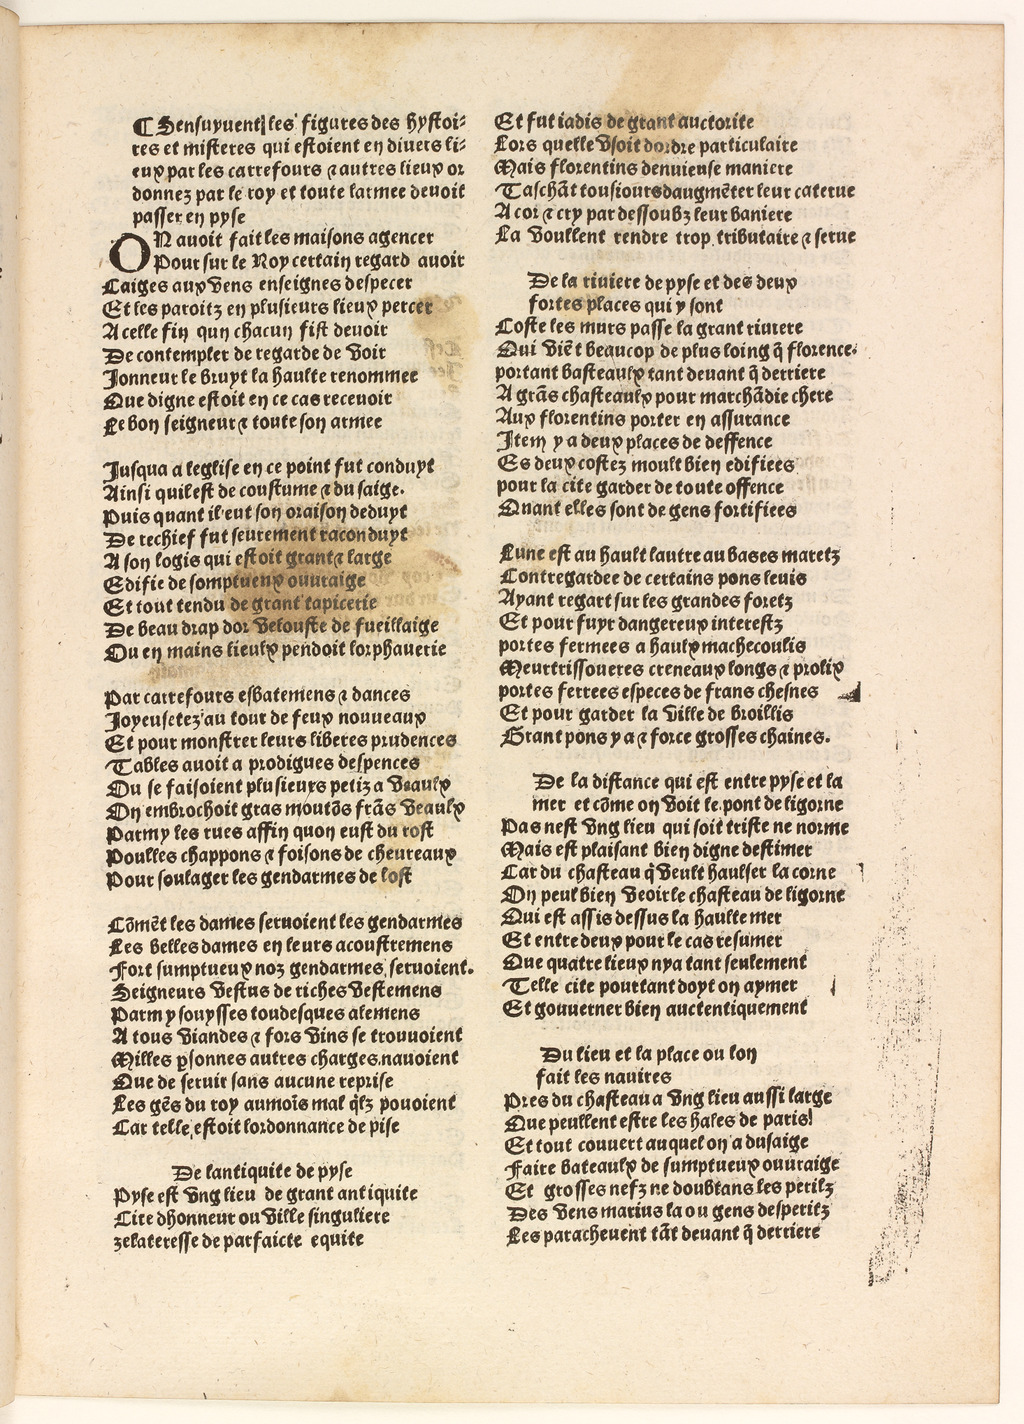 ¶ Sensuyuent les figures des hystoi=
res et misteres qui estoient en diuers li=
eux par les carrefours & autres lieux or
donnez par le roy et toute larmee deuoit
passer en pyse
ON auoit fait les maisons agencer
Pour sur le Roy certain regard auoir
Caiges aux vens enseignes despecer
Et les paroitz en plusieurs lieux percer
A celle fin qun chacun fist deuoir
De contempler de regarde de voir
Jonneur le bruyt la haulte renommee
Que digne estoit en ce cas receuoir
Le bon seigneur & toute son armee

Jusqua a leglise en ce point fut conduyt
Ainsi quil est de coustume & du saige.
Puis quant il eut son oraison deduyt
De rechief fut seurement raconduyt
A son logis qui estoit grant & large
Edifie de somptueux ouuraige
Et tout tendu de grant tapicerie
De beau drap dor velouste de fueillaige
Ou en mains lieulx pendoit lorphauerie

Par carrefours esbatemens & dances
Joyeusetez au tour de feux nouueaux
Et pour monstrer leurs liberes prudences
Tables auoit a prodigues despences
Ou se faisoient plusieurs petiz a veaulx
On embrochoit gras moutõs frãs veaulx
Parmy les rues affin quon eust du rost
Poulles chappons & foisons de cheureaux
Pour soulager les gendarmes de lost

Cõmẽt les dames seruoient les gendarmes
Les belles dames en leurs acoustremens
Fort sumptueux noz gendarmes seruoient.
Seigneurs vestus de riches vestemens
Parmy souysses toudesques alemens
A tous viandes & fors vins se trouuoient
Milles p̱sonnes autres charges nauoient
Que de seruir sans aucune reprise
Les gẽs du roy aumoĩs mal q̃lz pouoient
Car telle estoit lordonnance de pise

De lantiquite de pyse
Pyse est vng lieu de grant antiquite
Cite dhonneur ou ville singuliere
zelateresse de parfaicte equite
Et fut iadis de grant auctorite
Lors quelle vsoit dordre particulaire
Mais florentins denuieuse maniere
Taschãt tousiours daugmẽter leur caterue
A cor & cry par dessoubz leur baniere
La voullent rendre trop tributaire & serue

De la riuiere de pyse et des deux
fortes places qui y sont
Coste les murs passe la grant riuiere
Qui viẽt beaucop de plus loing q̃ florence.
portant basteaulx tant deuant q̃ derriere
A grãs chasteaulx pour marchãdie chere
Aux florentins porter en assurance
Item y a deux places de deffence
Es deux costez moult bien edifiees
pour la cite garder de toute offence
Quant elles sont de gens fortifiees

Lune est au hault lautre au bases maretz
Contregardee de certains pons leuis
Ayant regart sur les grandes foretz
Et pour fuyr dangereux interestz
portes fermees a haulx machecoulis
Meurtrissoueres creneaux longs & prolix
portes ferrees especes de frans chesnes
Et pour garder la ville de broillis
Grant pons y a & force grosses chaines.

De la distance qui est entre pyse et la
mer et cõme on voit le pont de ligorne
Pas nest vng lieu qui soit triste ne norme
Mais est plaisant bien digne destimer
Car du chasteau q̃ veult haulser la corne
On peult bien veoir le chasteau de ligorne
Qui est assis dessus la haulte mer
Et entre deux pour le cas resumer
Que quatre lieux nya tant seulement
Telle cite pourtant doyt on aymer
Et gouuerner bien auctentiquement

Du lieu et la place ou lon
fait les nauires
Pres du chasteau a vng lieu aussi large
Que peullent estre les hales de paris
Et tout couuert auquel on a dusaige
Faire bateaulx de sumptueux ouuraige
Et grosses nefz ne doubtans les perilz
Des vens marius la ou gens desperitz
Les paracheuent tãt deuant q̃ derriere